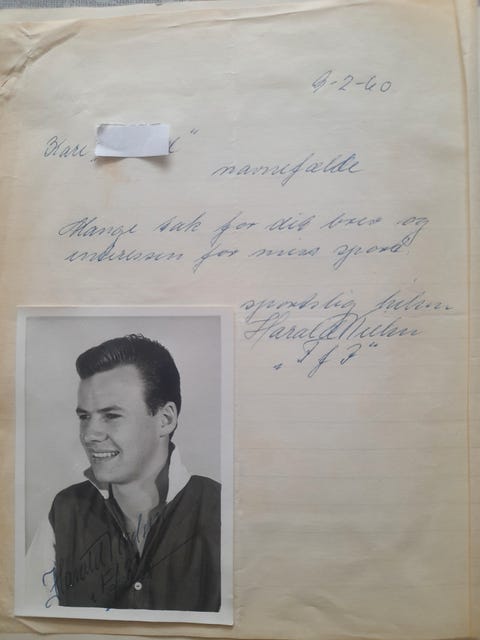 9-2-60
Kære "
navnefælde
Mange tak for dit brev og
interessen for min sport
sportslig hilsen
Harald Nielsen
"FfI"
Harald Nielsen